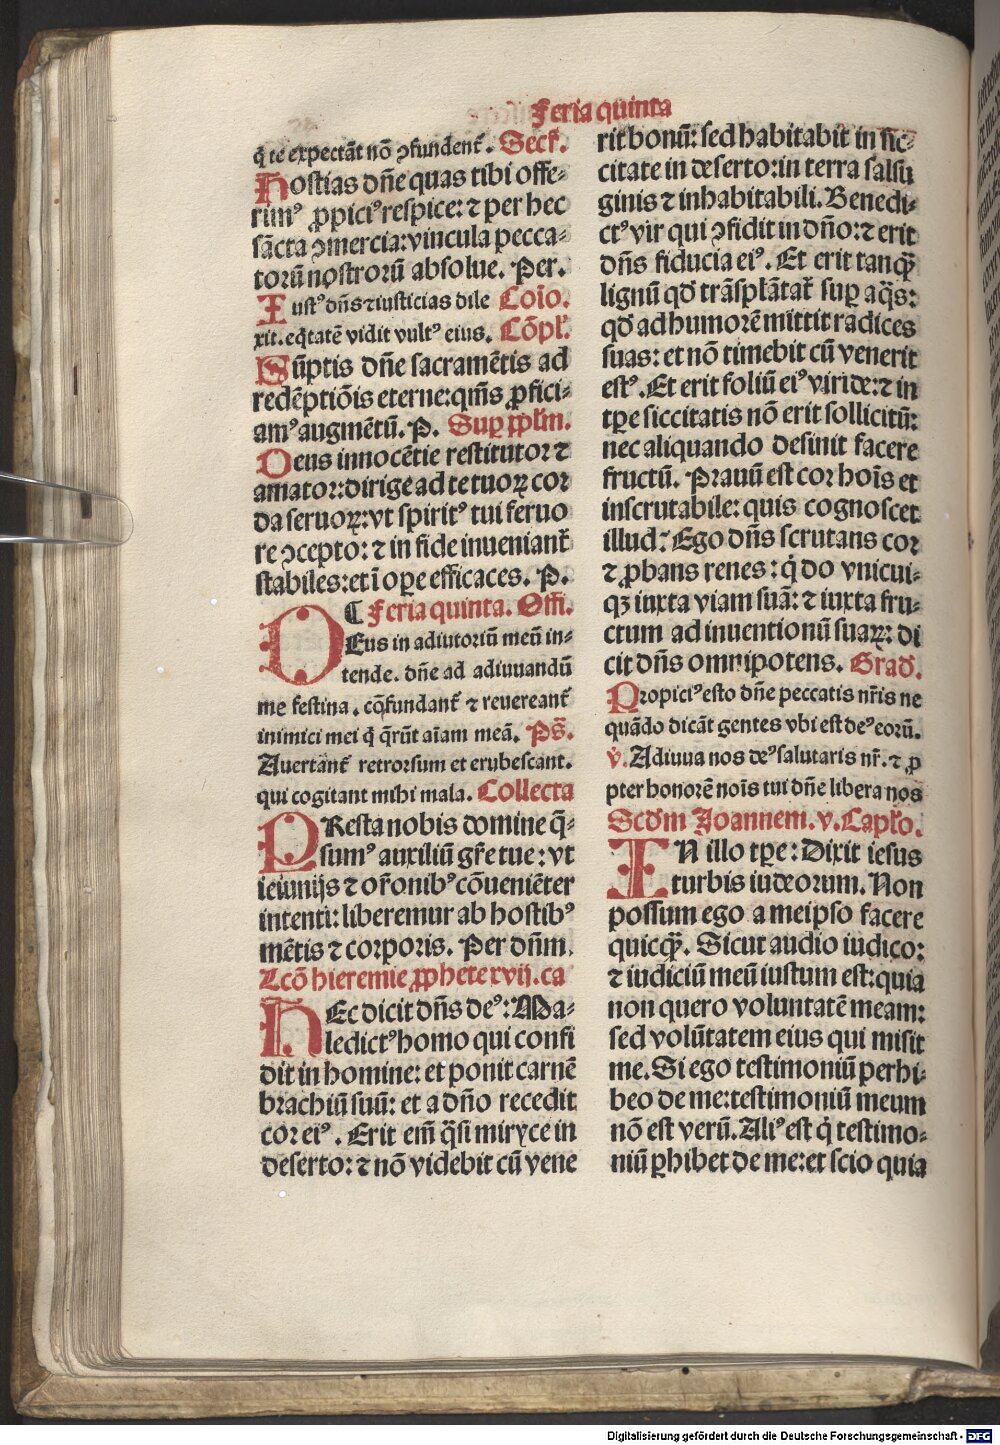 Feria quinta
q̄ te expectāt nō ꝯfundent᷑. Secr̄.
Hostias dn̄e quas tibi offe-
rimꝰ ꝓpiciꝰ respice: ⁊ per hec
sācta ꝯmercia: vincula pecca-
torū nostrorū absolue. Per.
Iustꝰ dn̄s ⁊ iusticias dile Coīo.
xit. eq̄tatē vidit vultꝰ eius. Cōpl̄.
Sūptis dn̄e sacramētis ad
redēptiōis eterne: qm̄s ꝓfici-
amꝰ augmētū. P. Sup̄ ppl̄m.
Deus innocētie restitutor ⁊
amator: dirige ad te tuoꝝ cor
da seruoꝝ: vt spiritꝰ tui feruo
re ꝯcepto: ⁊ in fide inueniant᷑
stabiles: et ī ope efficaces. P.
¶ Feria quinta. Offi.
DEus in adiutoriū meū in-
tende. dn̄e ad adiuuandū
me festina. cōfundant᷑ ⁊ reuereant᷑
inimici mei q̄ q̄rūt aīam meā. Ps̄.
Auertant᷑ retrorsum et erubescant.
qui cogitant mihi mala. Collecta
PResta nobis domine q̄-
sumꝰ auxiliū gr̄e tue: vt
ieiunijs ⁊ or̄onibꝰ cōueniēter
intenti: liberemur ab hostibꝰ
mētis ⁊ corporis. Per dn̄m.
Lcō hieremie ꝓphete xvij. ca
HEc dicit dn̄s deꝰ: Ma-
ledictꝰ homo qui confi
dit in homine: et ponit carnē
brachiū suū: et a dn̄o recedit
cor eiꝰ. Erit em̄ q̄si miryce in
deserto: ⁊ nō videbit cū vene
rit bonū: sed habitabit in sic-
citate in deserto: in terra salsu
ginis ⁊ inhabitabili. Benedi-
ctꝰ vir qui ꝯfidit in dn̄o: ⁊ erit
dn̄s fiducia eiꝰ. Et erit tanq̄
lignū qd̄ trāsplātat᷑ sup aq̄s:
qd̄ ad humorē mittit radices
suas: et nō timebit cū venerit
estꝰ. Et erit foliū eiꝰ viride: ⁊ in
tp̄e siccitatis nō erit sollicitū:
nec aliquando desinit facere
fructū. Prauū est cor hoīs et
inscrutabile: quis cognoscet
illud: Ego dn̄s scrutans cor
⁊ ꝓbans renes: q̄ do vnicui-
qꝫ iuxta viam suā: ⁊ iuxta fru-
ctum adinuentionū suaꝝ: di
cit dn̄s omnipotens. Grad̄.
Propiciꝰ esto dn̄e peccatis nr̄is ne
quādo dicāt gentes vbi est deꝰ eorū.
v̄. Adiuua nos deꝰ salutaris nr̄. ⁊ ꝓ
pter honorē noīs tui dn̄e libera nos
Scd̄m Joannem. v. Capl̄o.
IN illo tp̄e: Dixit iesus
turbis iudeorum. Non
possum ego a meipso facere
quicq̄. Sicut audio iudico:
⁊ iudiciū meū iustum est: quia
non quero voluntatē meam:
sed volūtatem eius qui misit
me. Si ego testimoniū perhi-
beo de me: testimoniū meum
nō est verū. Aliꝰ est q̄ testimo-
niū ꝑhibet de me: et scio quia
Digitalisierung gefördert durch die Deutsche Forschungsgemeinschaft - DFG